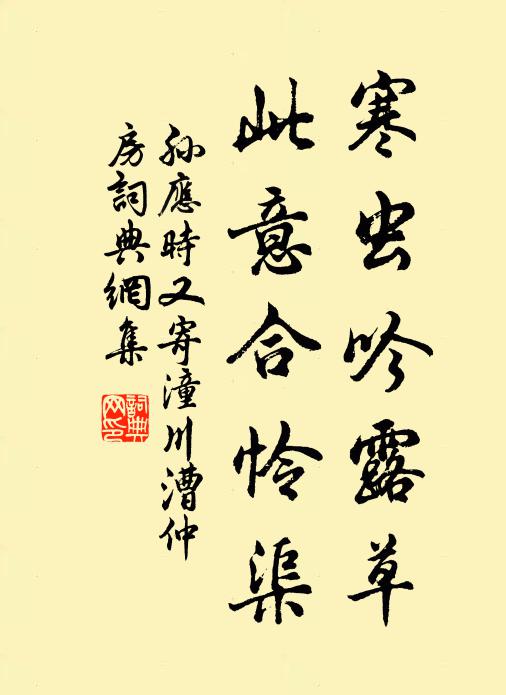 寒虫吟露草
此意合怜渠
孙應時又寄潼川漕仲
房詞典網集
詞典
网印